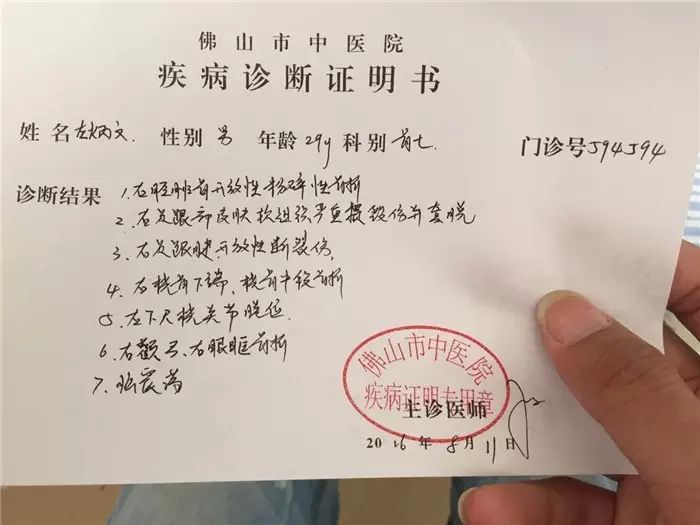 佛山市中医院
疾病诊断证明书
姓名左炳文. 性别 男 年龄 29y 科别 骨七. 门诊号594594
诊断结果 1.右胫腓骨开放性粉碎性骨折
2、右足跟部皮肤软组织严重撕裂伤并套脱
3、右足跟腱开放性断裂伤,
4、右桡骨下端、桡骨中段骨折
5、左下尺桡关节脱位
6、右颧弓、右眼眶骨折
7、脑震荡
佛山市中医院
疾病证明专用章
主诊医师
2016年 8月 11日